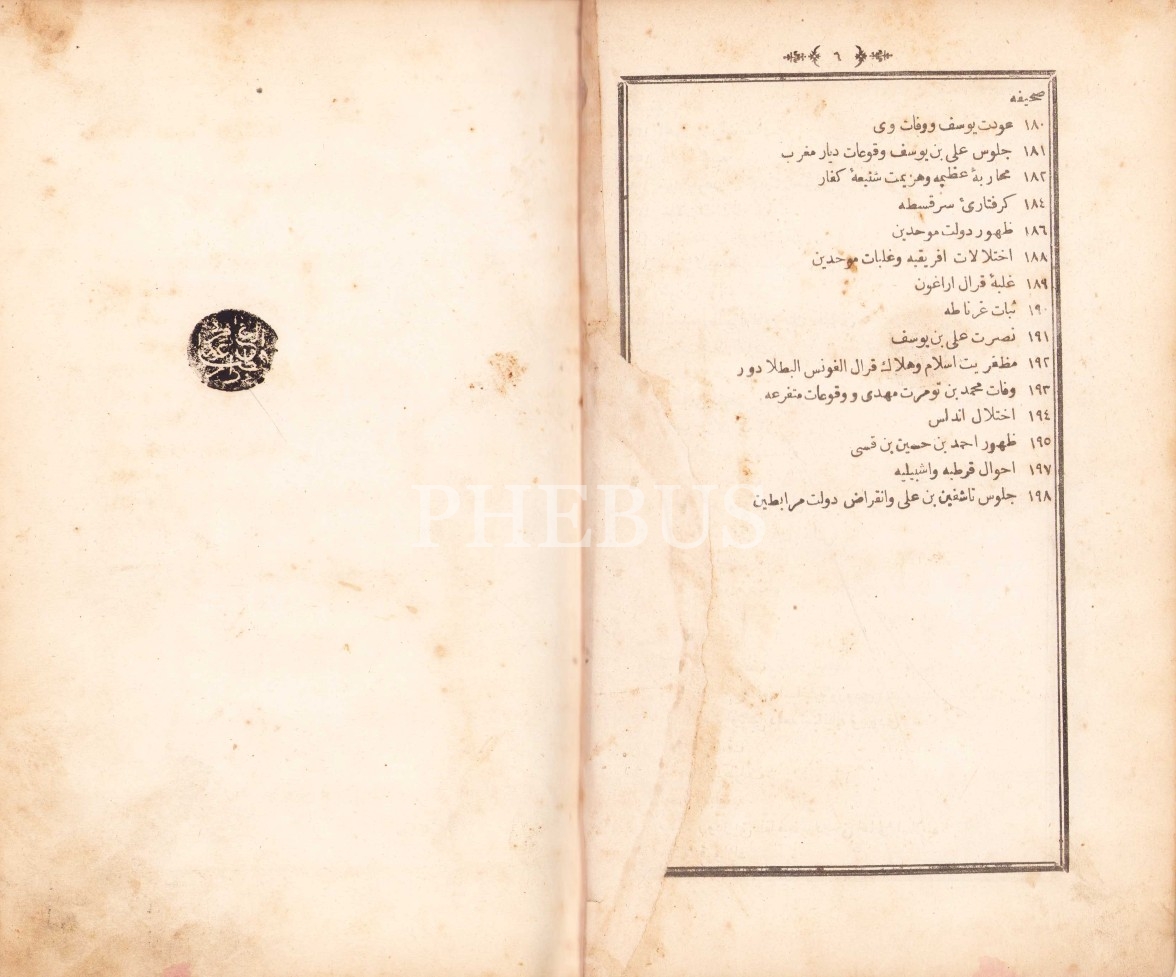 ٦
صحيفه
١٨٠ عودت يوسف ووفات وى
١٨١ جلوس على بن يوسف وقوعات ديار مغرب
١٨٢ محاربهٔ عظيمه وهزيمت شنيعهٔ كفار
١٨٤ كرفتارىٔ سرقسطه
١٨٦ ظهور دولت موحدين
١٨٨ اختلالات افريقيه وغلبات موحدين
١٨٩ غلبهٔ قرال اراغون
١٩٠ ثبات غرناطه
١٩١ نصرت على بن يوسف
١٩٢ مظفريت اسلام وهلاك قرال الفونس البطلادور
١٩٣ وفات محمد بن تومرت مهدى و وقوعات متفرعه
١٩٤ اختلال اندلس
١٩٥ ظهور احمد بن حسين بن قسى
١٩٧ احوال قرطبه واشبيليه
١٩٨ جلوس تاشفين بن على وانقراض دولت مرابطين
PHEBUS